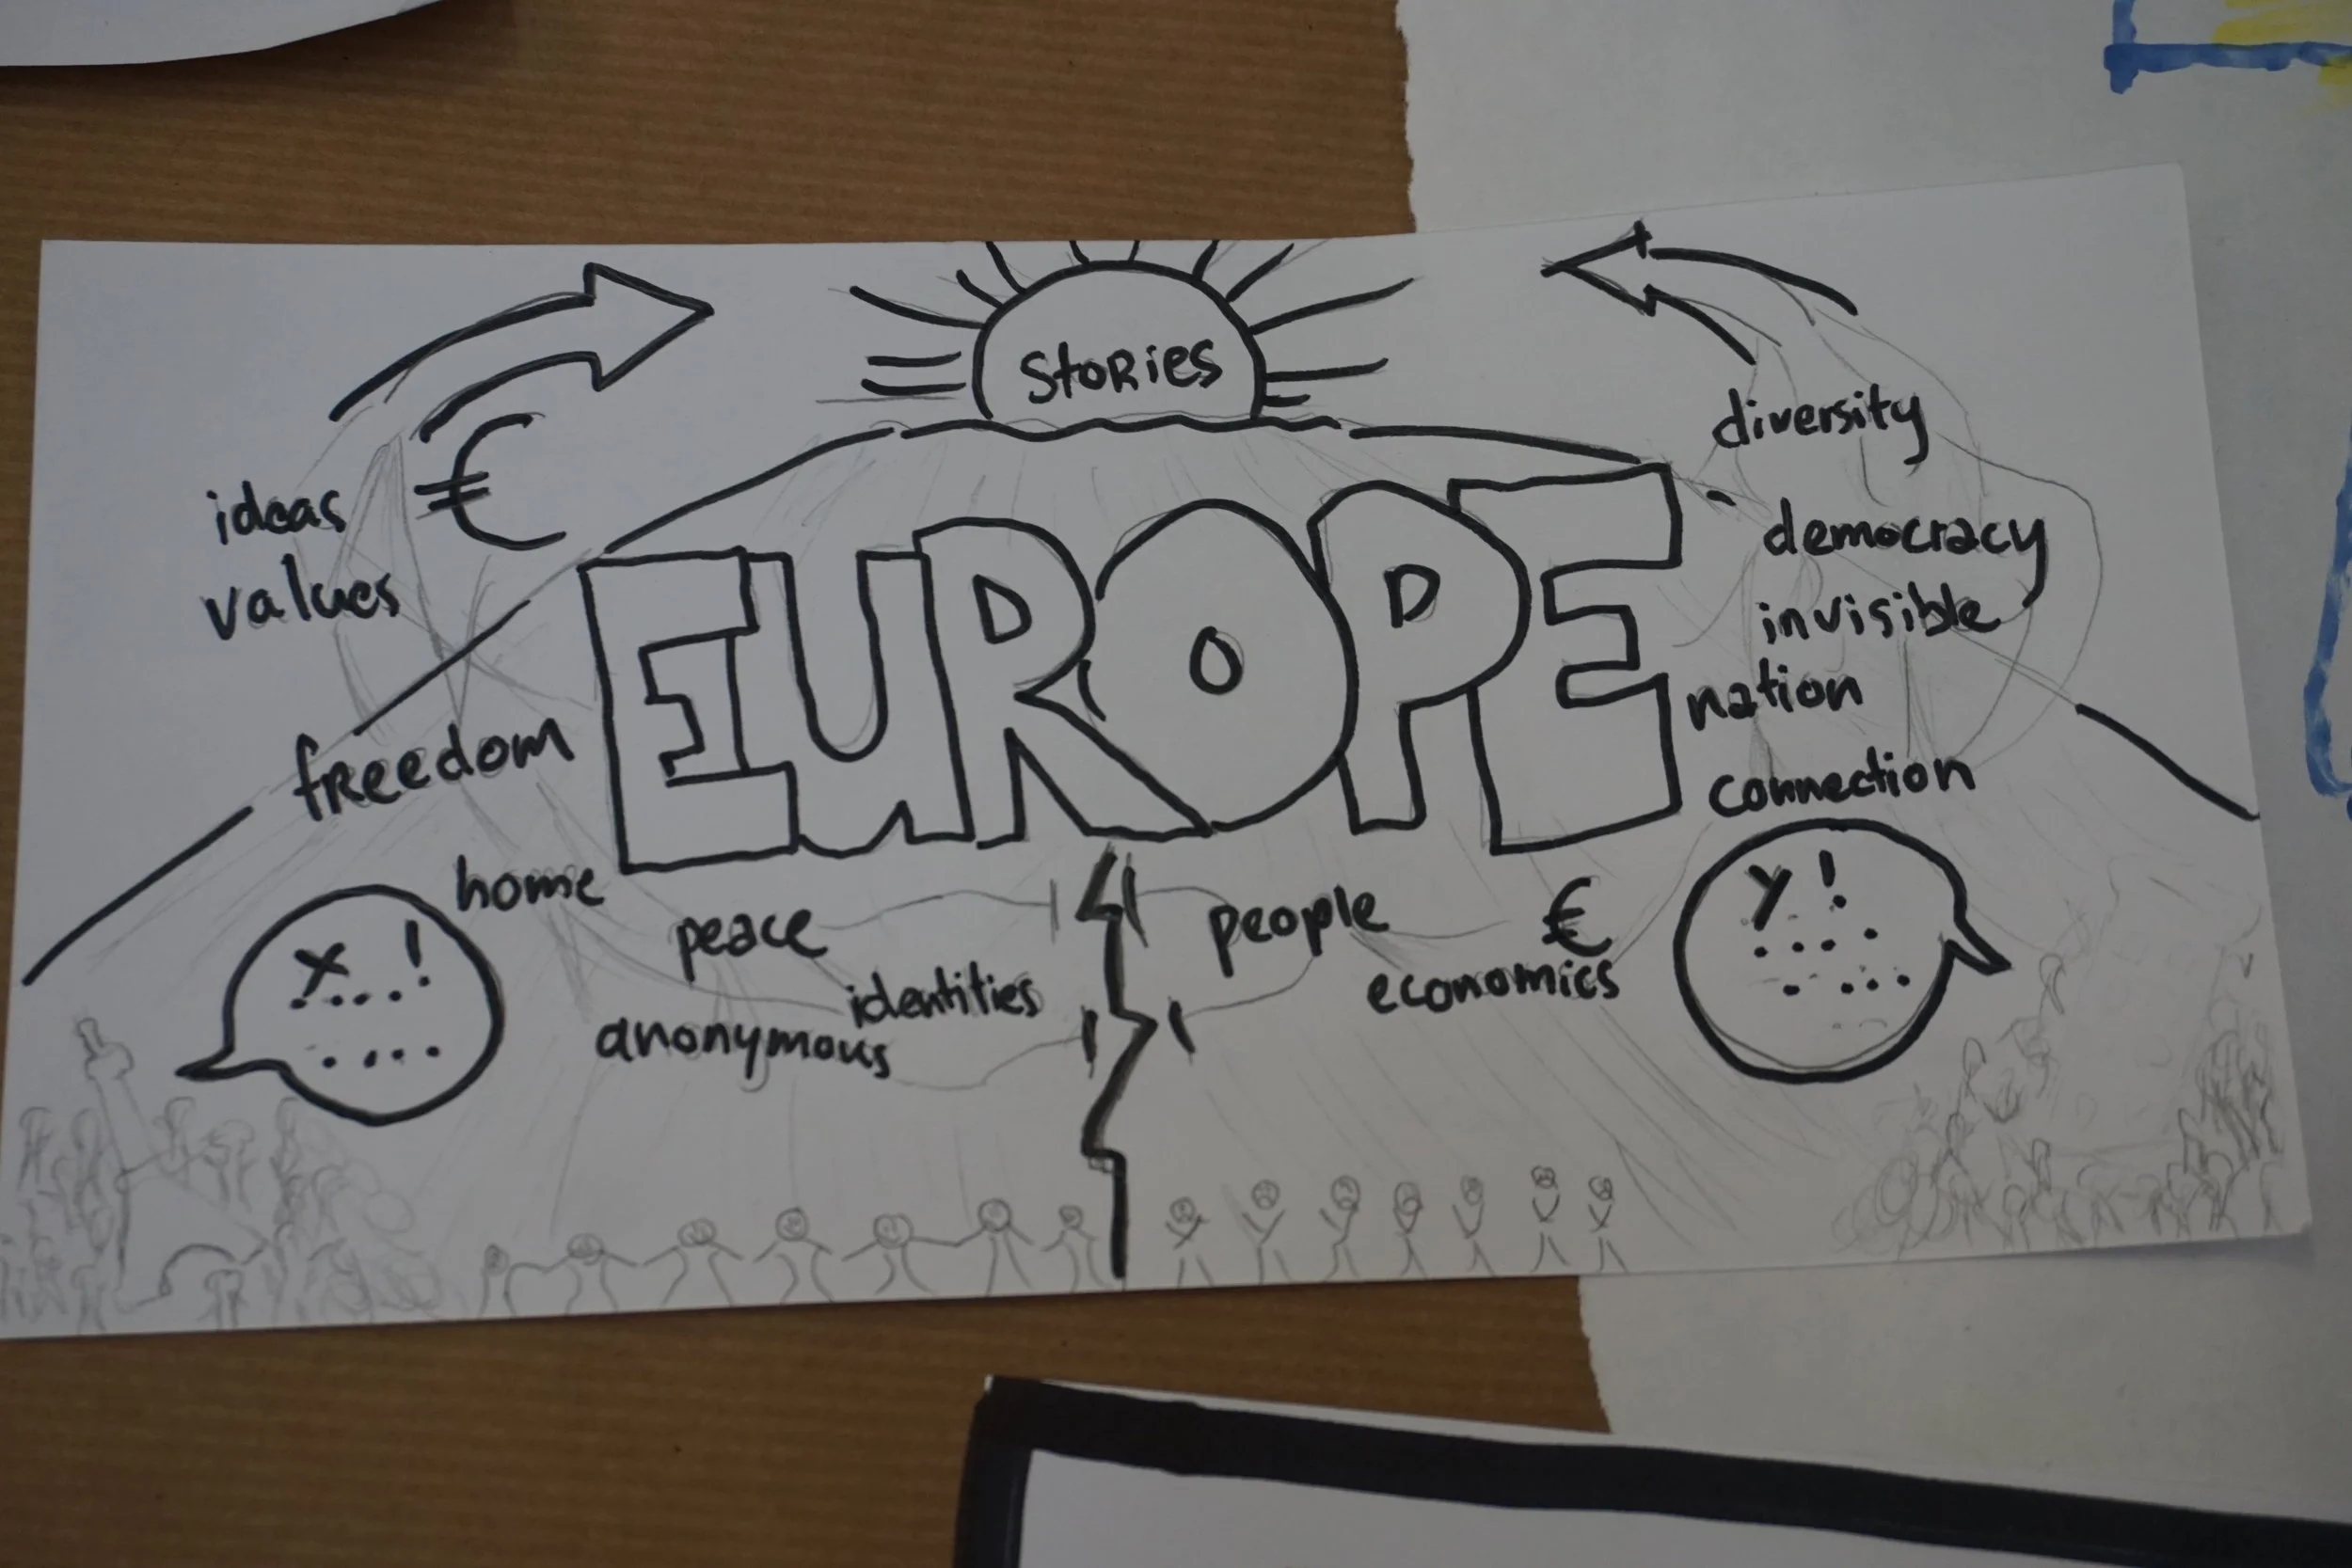 StoRies
€
ideas
values
diversity
EUROPE
democracy
invisible
nation
connection
freedom
home
peace
identities
anonymous
people
€
economics
x !
y !